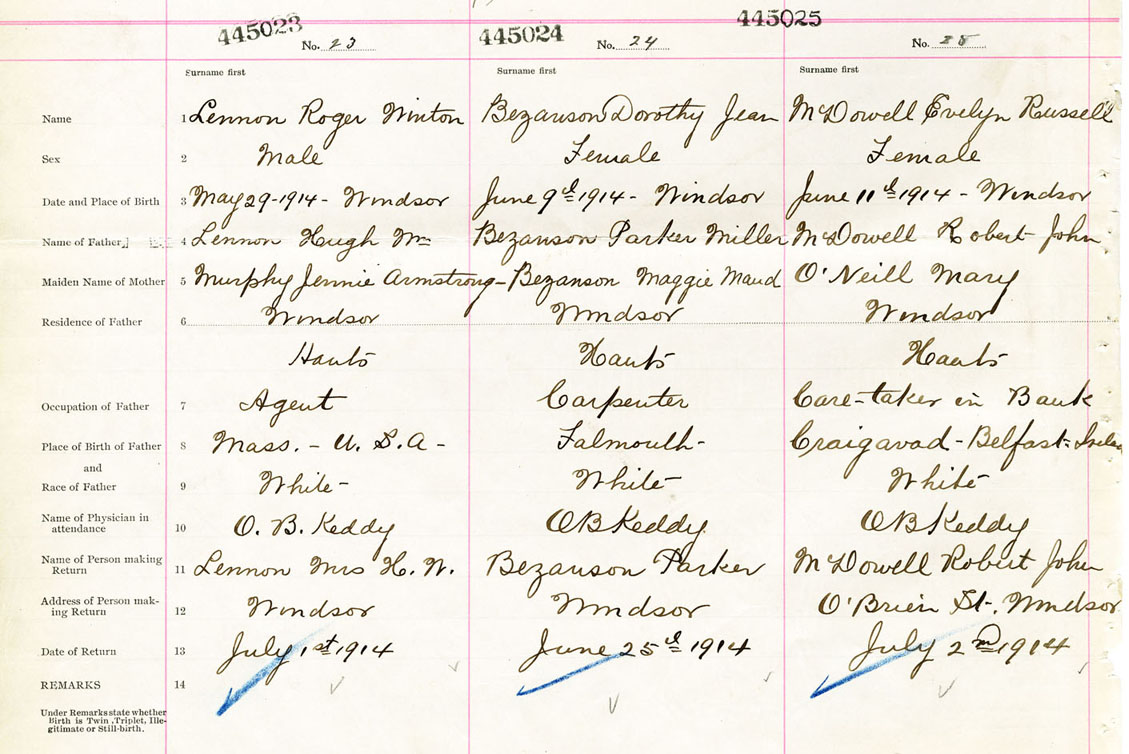 445023 No. 23 445024 No. 24 445025 No. 25
Surname first Surname first Surname first
Name 1 Lennon Roger Winton Bezanson Dorothy Jean McDowell Evelyn Russell
Sex 2 Male Female Female
Date and Place of Birth 3 May 29-1914- Windsor June 9th 1914- Windsor June 11th 1914- Windsor
Name of Father 4 Lennon Hugh Wm Bezanson Parker Miller McDowell Robert John
Maiden Name of Mother 5 Murphy Jennie Armstrong- Bezanson Maggie Maud O'Neill Mary
Residence of Father 6 Windsor Windsor Windsor
Hants Hants Hants
Occupation of Father 7 Agent Carpenter Care-taker in Bank
Place of Birth of Father 8 Mass. - U.S.A- Falmouth- Craigavad- Belfast-
and
Race of Father 9 White- White- White-
Name of Physician in attendance 10 O. B. Keddy OB Keddy OB Keddy
Name of Person making Return 11 Lennon Mrs H. W. Bezanson Parker McDowell Robert John
Address of Person mak-ing Return 12 Windsor Windsor O'Brien St. Windsor
Date of Return 13 July 1st 1914 June 25th 1914 July 2nd 1914
REMARKS 14
Under Remarks state whether
Birth is Twin, Triplet, Ille-
gitimate or Still-birth.